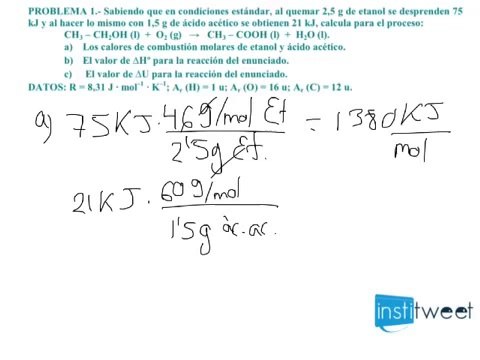 PROBLEMA 1.- Sabiendo que en condiciones estándar, al quemar 2,5 g de etanol se desprenden 75
kJ y al hacer lo mismo con 1,5 g de ácido acético se obtienen 21 kJ, calcula para el proceso:
CH₃ – CH₂OH (l) + O₂ (g) → CH₃ – COOH (l) + H₂O (l).
a) Los calores de combustión molares de etanol y ácido acético.
b) El valor de ΔHº para la reacción del enunciado.
c) El valor de ΔU para la reacción del enunciado.
DATOS: R = 8,31 J · mol⁻¹ · K⁻¹; Aᵣ (H) = 1 u; Aᵣ (O) = 16 u; Aᵣ (C) = 12 u.
a) 75KJ · 46g/mol Et / 2'5g Et. = 1380 KJ/mol
21KJ · 60g/mol / 1'5g àc. ac.
institweet